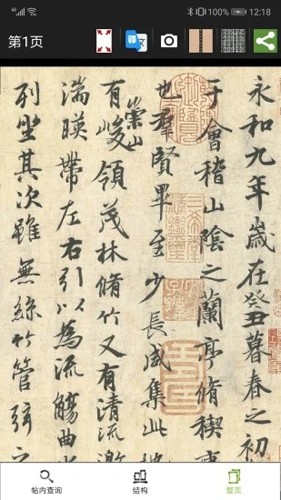 12:18
100%
第1页
永和九年歲在癸丑暮春之初
于會稽山陰之蘭亭脩稧事
也羣賢畢至少長咸集此地
有崇山峻領茂林脩竹又有清流激
湍暎帶左右引以為流觴曲水
列坐其次雖無絲竹管弦之
帖内查询
结构
整页